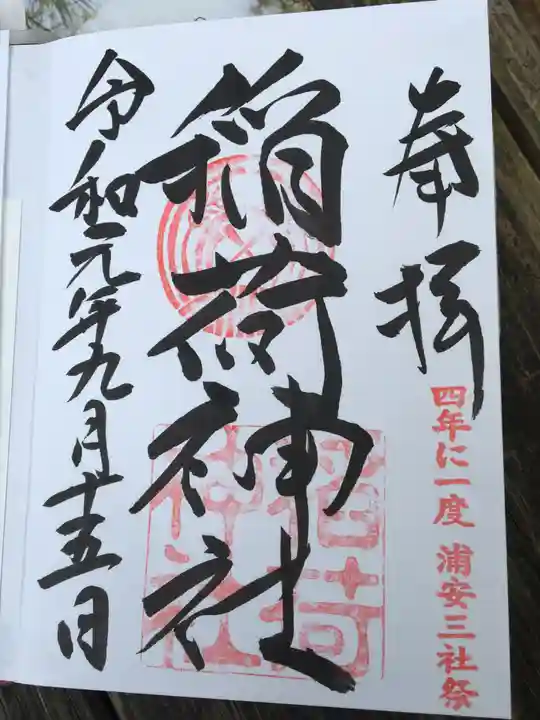 奉拝
四年に一度 浦安三社祭
稲荷神社
稲荷
神社
令和元年九月十五日